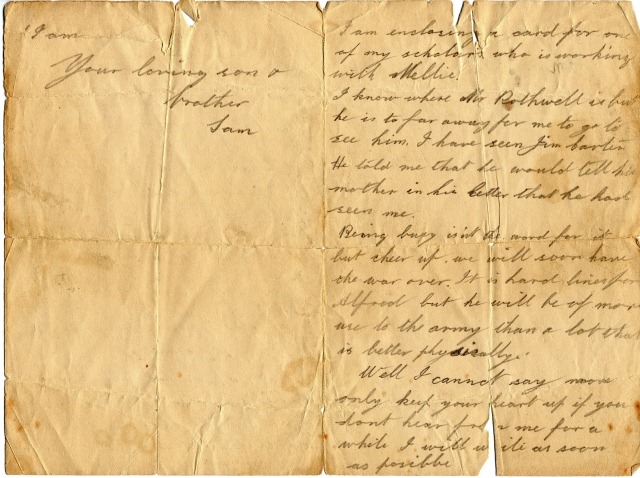 I am enclosing a card for one
of my scholars who is working
with Nellie.
I know where Mr Rothwell is but
he is to far away for me to go to
see him. I have seen Jim
He told me that he would tell his
mother in his letter that he had
seen me.
Being busy isnt the word for it
but cheer up, we will soon have
the war over. It is hard lines for
Alfred but he will be of more
use to the army than a lot that
is better physically.
Well I cannot say more
only keep your heart up if you
dont hear from me for a
while I will write as soon
as possible
I am
Your loving son &
brother
Sam